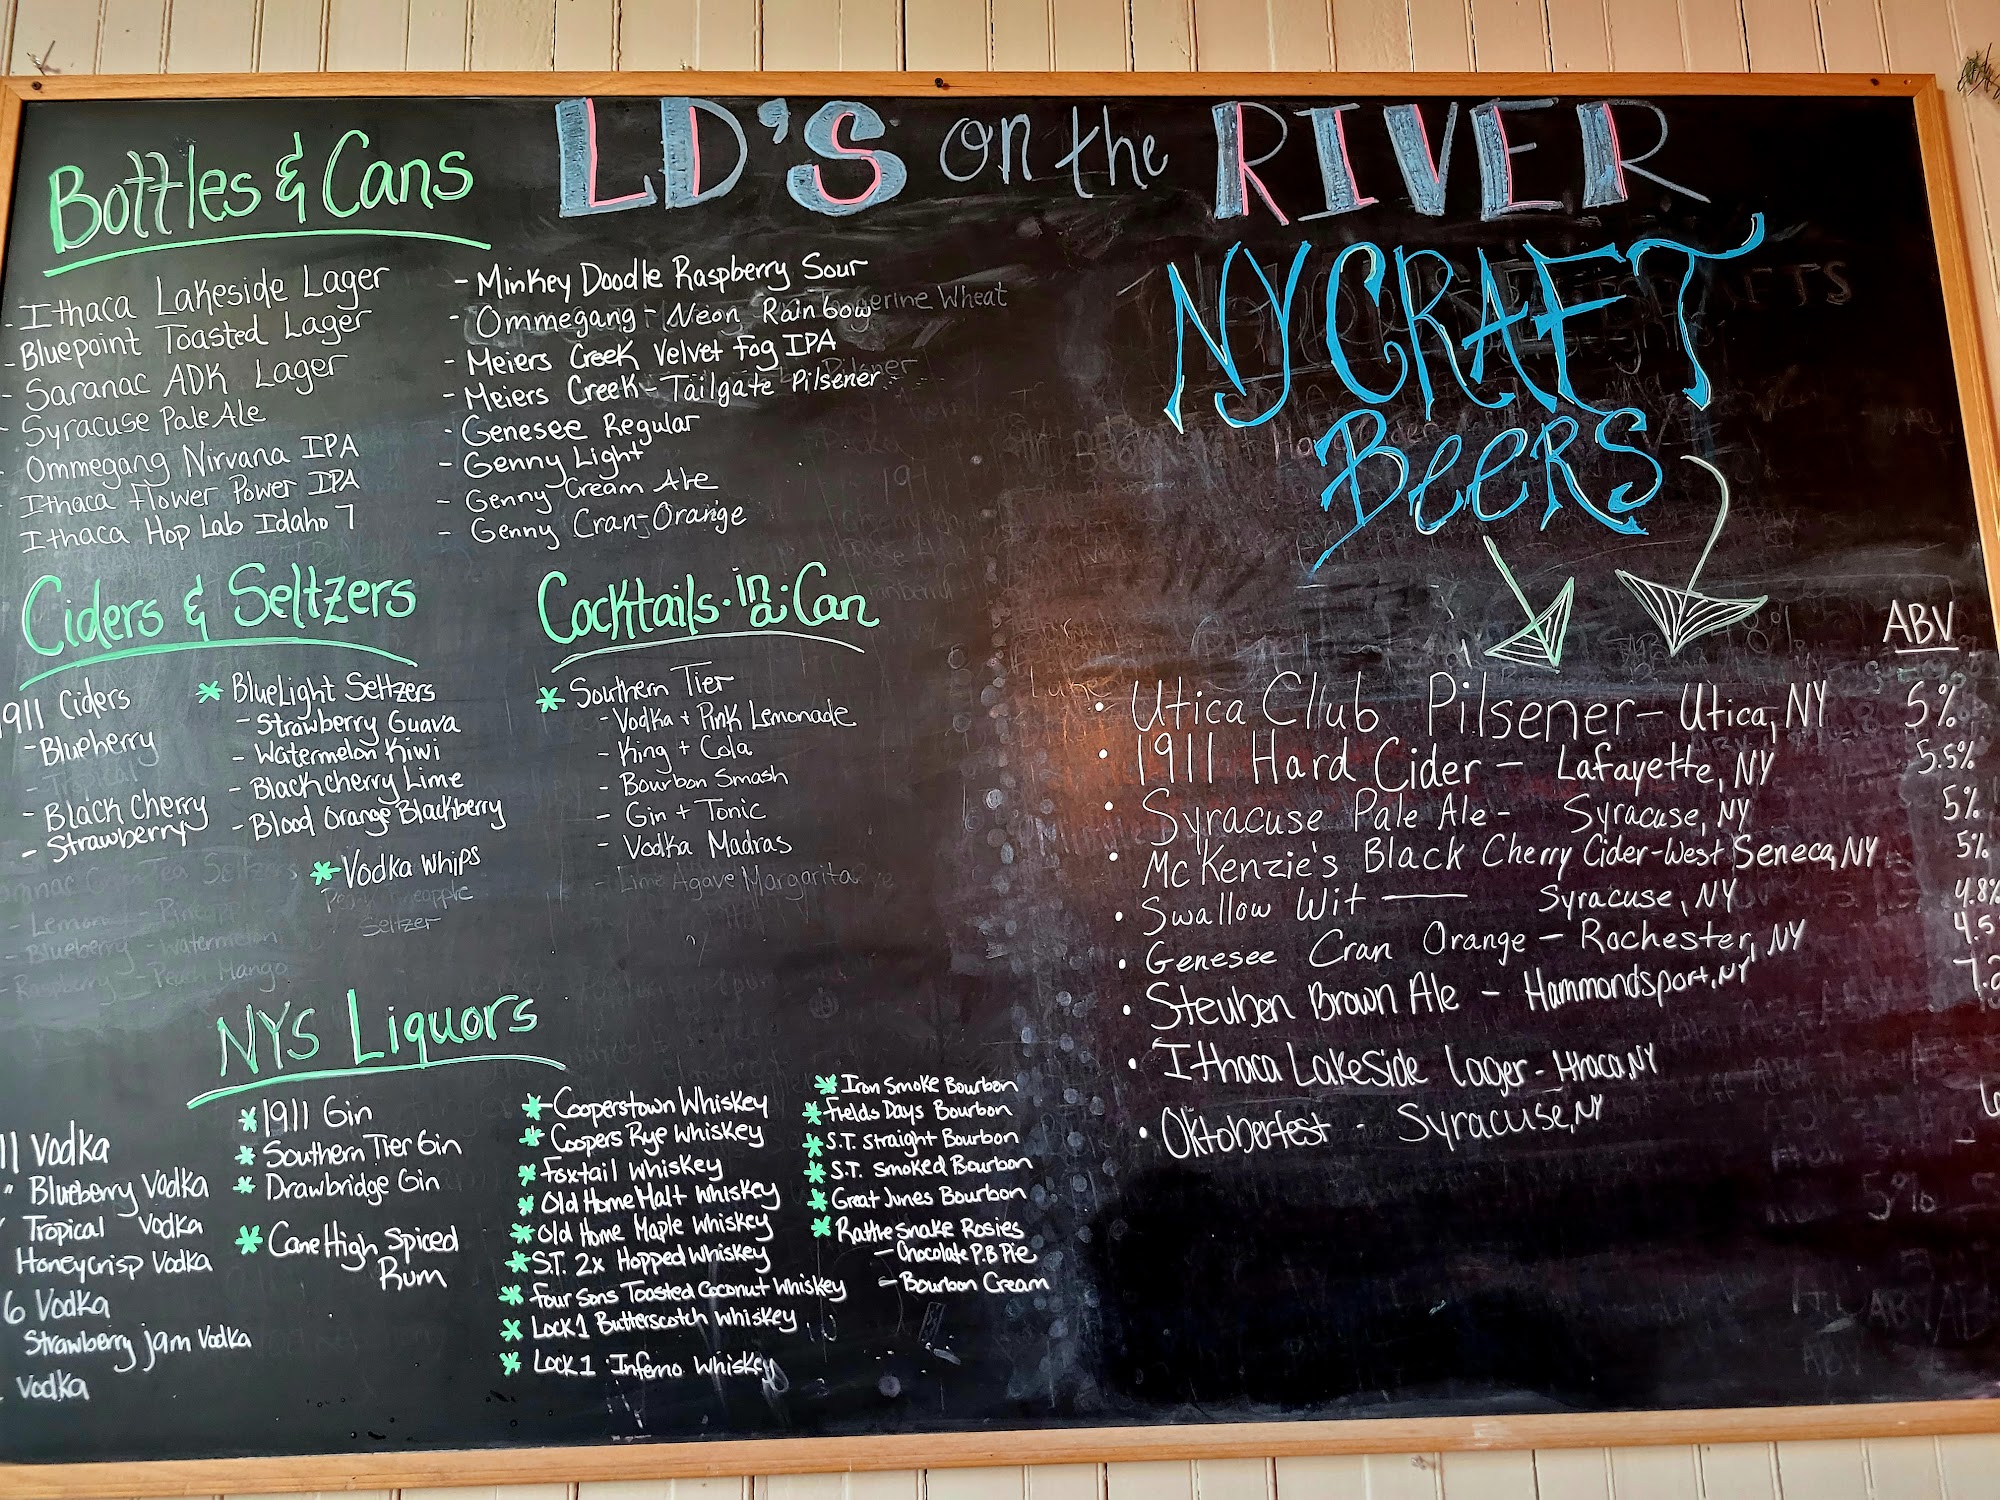 LD'S on the RIVER
Bottles & Cans
- Ithaca Lakeside Lager
- Bluepoint Toasted Lager
- Saranac ADK Lager
- Syracuse Pale Ale
- Ommegang Nirvana IPA
- Ithaca Flower Power IPA
Ithaca Hop Lab Idaho 7
- Minkey Doodle Raspberry Sour
- Ommegang - Neon Rainbow
- Meiers Creek Velvet Fog IPA
- Meiers Creek - Tailgate Pilsener
- Genesee Regular
- Genny Light
- Genny Cream Ale
- Genny Cran-Orange
Ciders & Seltzers
1911 Ciders
- Blueberry
- Black Cherry
- Strawberry
* BlueLight Seltzers
- Strawberry Guava
- Watermelon Kiwi
- Blackcherry Lime
- Blood Orange Blackberry
* Vodka Whips
Seltzer
- Lemon
- Blueberry - Watermelon
- Raspberry - Peach Mango
Cocktails·in·a·Can
* Southern Tier
- Vodka + Pink Lemonade
- King + Cola
- Bourbon Smash
- Gin + Tonic
- Vodka Madras
- Lime Agave Margarita
NYS Liquors
11 Vodka
" Blueberry Vodka
Tropical Vodka
Honeycrisp Vodka
6 Vodka
Strawberry Jam Vodka
Vodka
* 1911 Gin
* Southern Tier Gin
* Drawbridge Gin
* Cane High Spiced
Rum
* Cooperstown Whiskey
* Coopers Rye Whiskey
* Foxtail Whiskey
* Old Home Malt Whiskey
* Old Home Maple Whiskey
* S.T. 2x Hopped Whiskey
* Four Sons Toasted Coconut Whiskey
* Lock 1 Butterscotch Whiskey
* Lock 1 Inferno Whiskey
* Iron Smoke Bourbon
* Fields Days Bourbon
* S.T. Straight Bourbon
* S.T. Smoked Bourbon
* Great Junes Bourbon
* Rattle Snake Rosies
- Chocolate P.B Pie
- Bourbon Cream
NY CRAFT
BEERS
ABV
• Utica Club Pilsener - Utica, NY 5%
• 1911 Hard Cider - Lafayette, NY 5.5%
• Syracuse Pale Ale - Syracuse, NY 5%
• McKenzie's Black Cherry Cider - West Seneca, NY 5%
• Swallow Wit — Syracuse, NY 4.8%
• Genesee Cran Orange - Rochester, NY 4.5
• Steuben Brown Ale - Hammondsport, NY 7.2
• Ithaca Lakeside Lager - Ithaca, NY
• Oktoberfest - Syracuse, NY